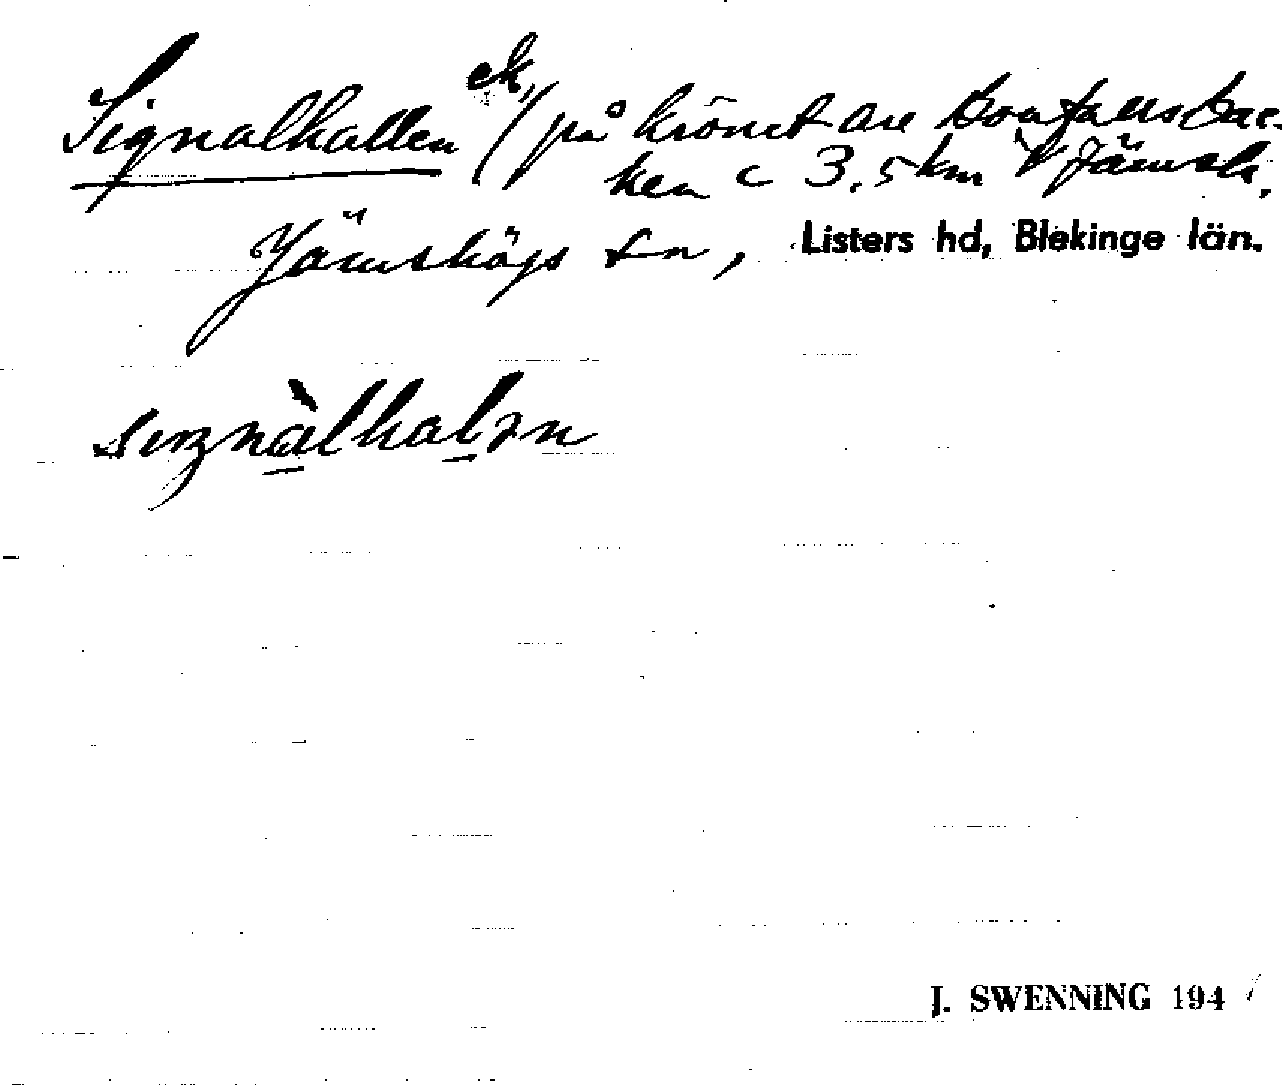 Signalhallen ek, / på krönet av
ken c 3.5 km V Jämsh.
Jämshögs sn, Listers hd, Blekinge län.
J. SWENNING 194